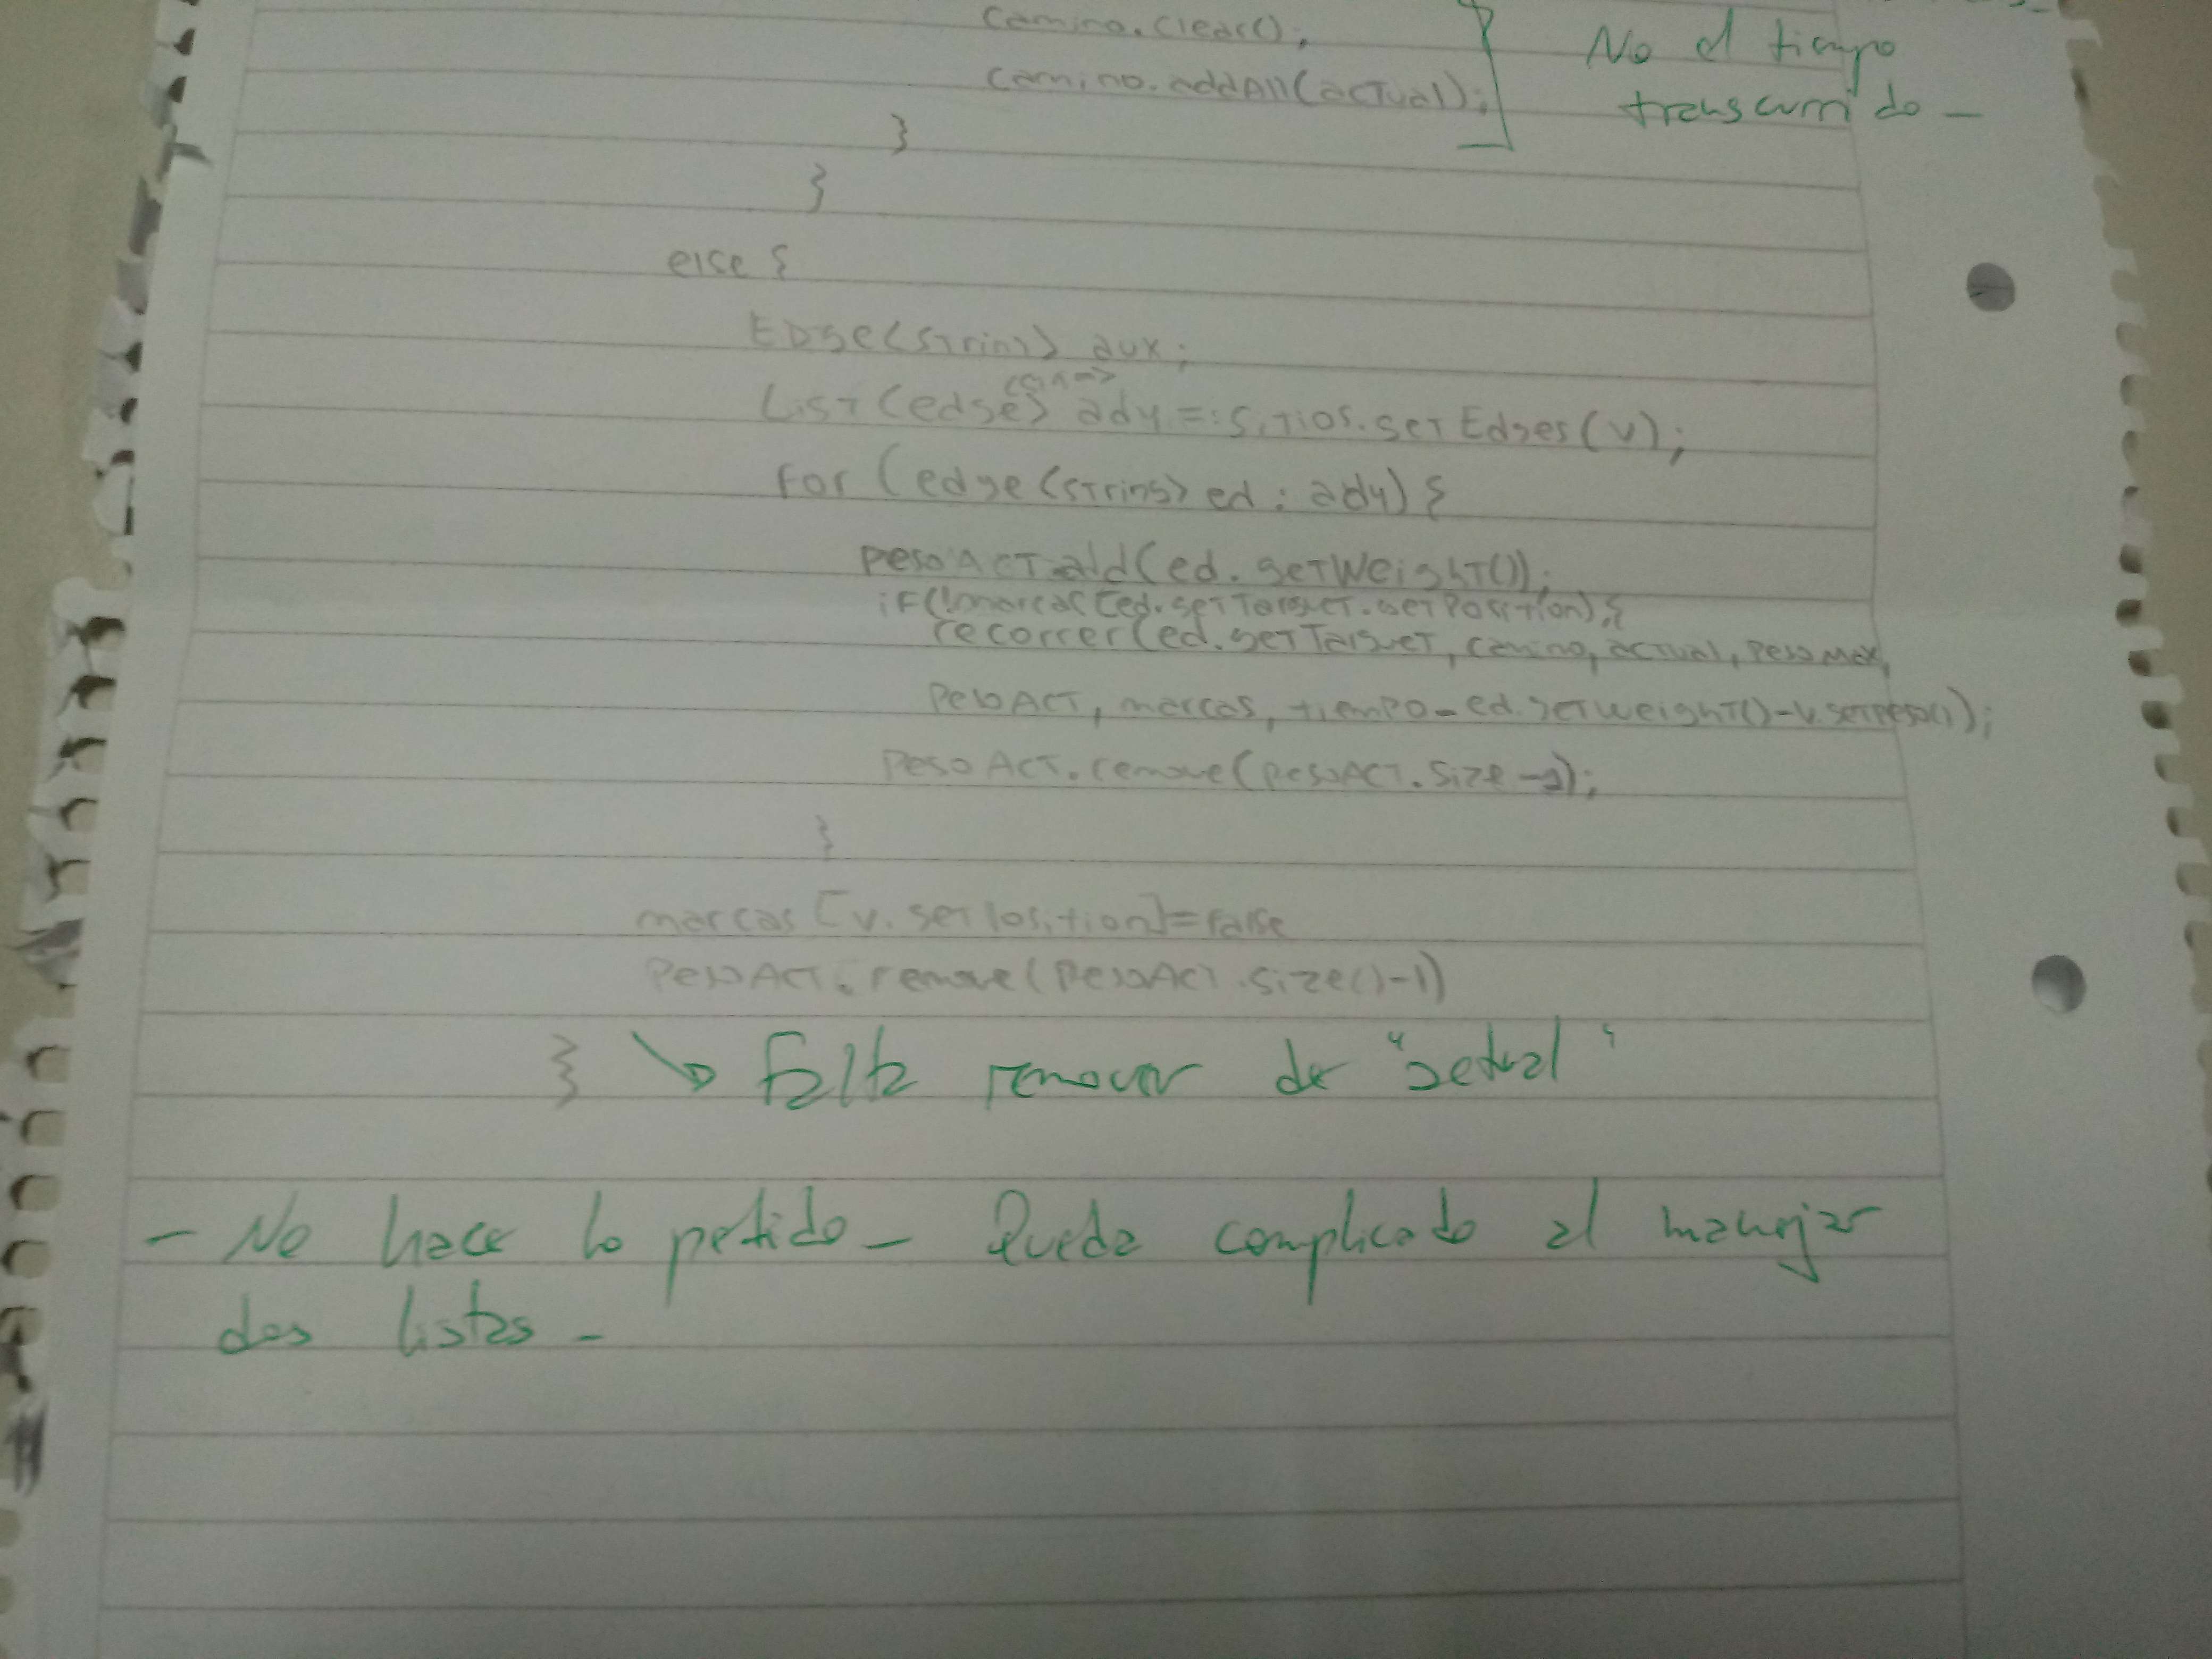 camino.clear();
No el tiempo
camino.addAll(actual);
transcurrido -
}
}
else {
Edge<String> aux;
List<edge<String>> ady = sitios.getEdges(v);
for (edge<string> ed : ady) {
pesoAct.add(ed.getWeight());
if(!marcas[ed.getTarget.getPosition){
recorrer(ed.getTarget, camino, actual, pesoMax,
pesoAct, marcas, tiempo-ed.getweight()-v.getpeso());
pesoAct.remove(pesoAct.size-1);
}
marcas[v.getPosition]=false
pesoAct.remove(pesoAct.size()-1)
} → Falta remover de "actual"
- No hace lo pedido - Queda complicado al manejar
dos listas -